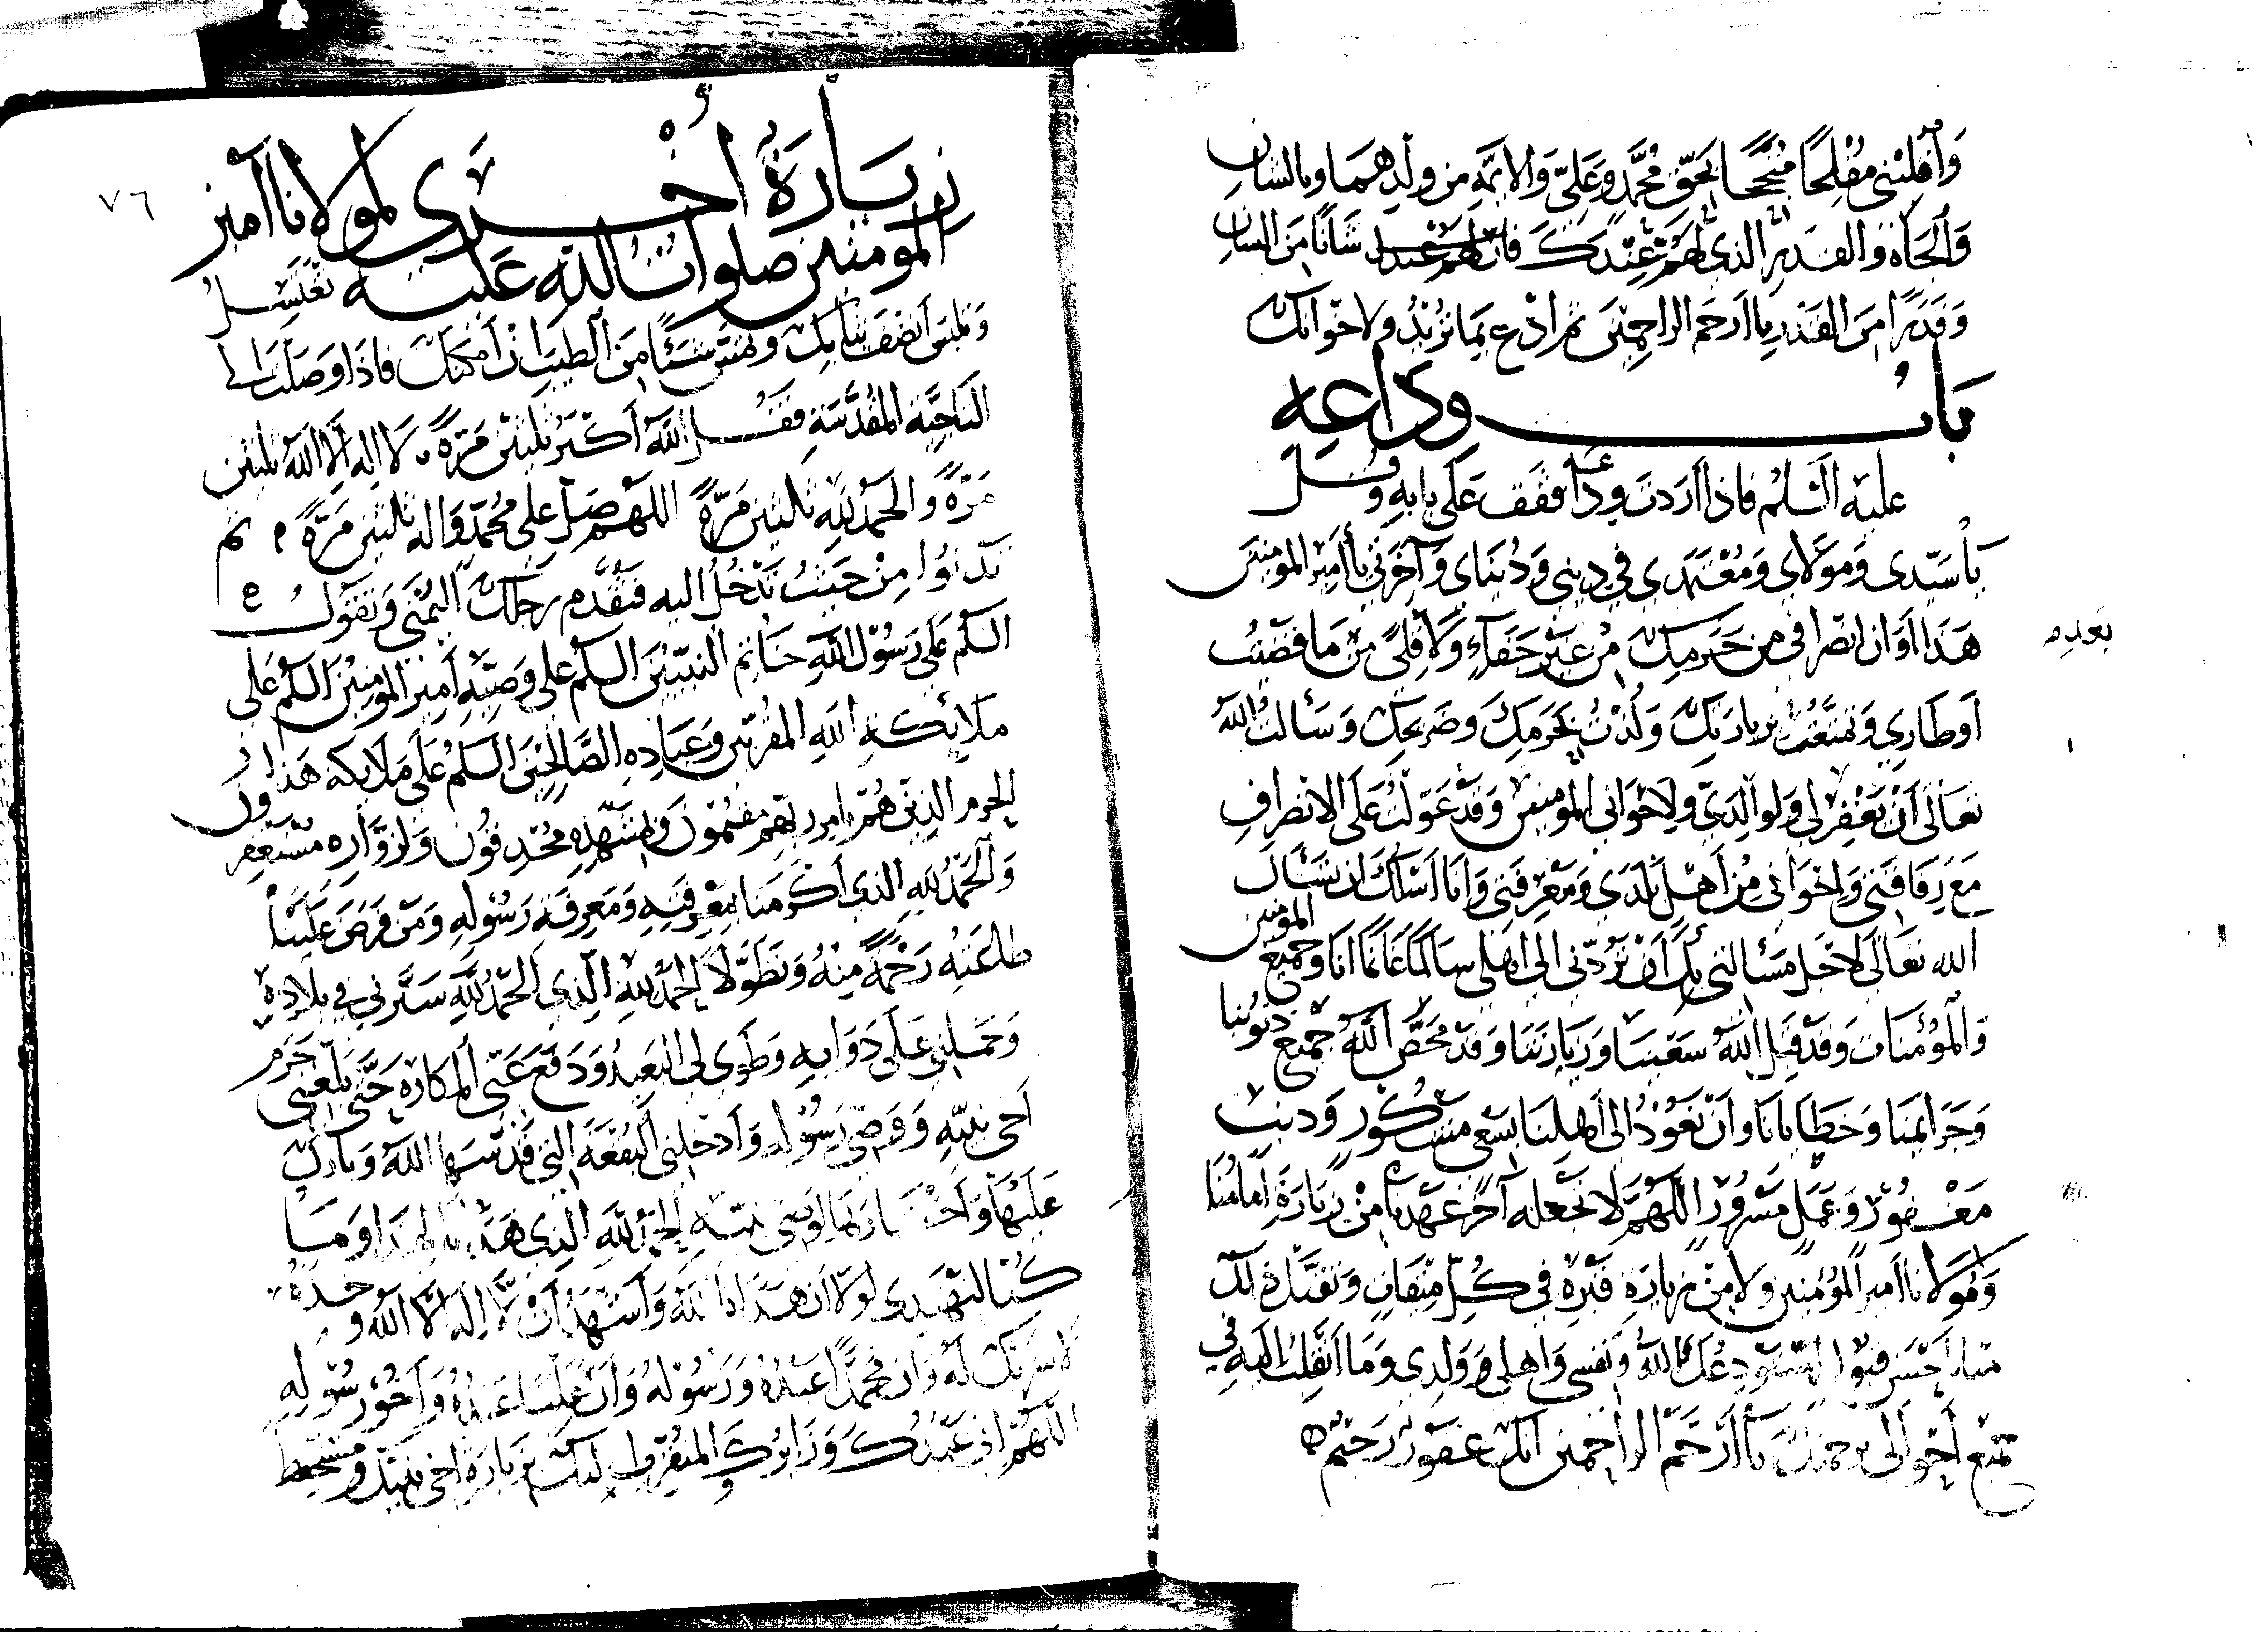 وَأقلبني مُفْلِحًا مُنجَحًا بحَقّ مُحَمَّدٍ وَعَلِيّ وَالائمَّةِ مِن ولْدِهمَا وبالشانِ
وَالجَاهِ والقَدرِ الذي لهُمْ عِنْدَكَ فانّ لهم عندك شَانًا مِنَ الشانِ
وَقَدرًا مِنَ القَدْرِ يا أرحَمَ الراحِمِيْنَ ثم ادْع بمَا تُرِيْدُ ولاخوانك
بَابُ وِدَاعِهِ
عليه السَّلمُ فاذا أرَدتَ وِدَاعَه فقف عَلَى بابِهِ وقُلْ
يا سيّدى وَمَوْلَاي وَمُعْتَمَدِي في ديني وَدُنيَاي وَآخِرَتي يا أمِيْرَ المومنينَ
هَذا اَوَانُ انصرَافي من حَرَمِكَ مِن غيْرِ جَفَآءٍ وَلَا قِلًى مِنْ بَعْدِ مَا قضَيْتُ
أوطَاري وَتمتّعْتُ بزيارَتِكَ وَلُذْتُ بحَرَمِكَ وضَريحِكَ وَسَألتُ اللهَ
تعَالَى أنْ يَغْفِرَ لي وَلوالِدَيَّ ولِاخْوَاني المومنينَ وَقدْ عَوّلْتُ عَلَى الانصِرَافِ
مَعَ رِفَاقتي وَاخْوَاني مِنْ أهْلِ بَلَدي وَمَعْرِفَتي وَانَا اَسْئلُكَ ان تسْئَالَ
الله تعَالَى لاجْلِ مَسْالتي بكَ أنْ يَرُدّني إلى اهْلي سَالمًا غَانمًا أنَا وَجميْعَ المؤمنين
وَالمُؤْمِنَات وَقدْ قبلَ اللهُ سَعْيَنَا وَزيَارَتَنا وَقدْ مَحَّصَ اللهُ جميْعَ ذنُوبنا
وَجَرَايمنَا وَخَطَايانَا وَأنْ نَعُوْدَ إلى أهلِنَا بسَعْيٍ مَشكُورٍ وَذنْبٍ
مَغْفُوْرٍ وَعَمَلٍ مَبْرُوْرٍ اللّهُمَّ لا تجعله آخِرَ عَهْدِنَا مِنْ زِيَارَةِ اِمَامِنَا
وَمَوْلَانا أميرِ المُؤْمنينَ ولا مِنْ زيارَةِ قبْرِهِ في كُلِّ مِيْقَاتٍ وَتَقَبَّلْ ذَلكَ
منا بأحْسَنِ قبُوْلٍ أستَودِعُكَ اللهَ وَنفسي وَاهلي وَوَلدِي وَمَا أَنقلبُ اليهِ في
جميْعِ أحْوَالي برحمتكَ يا أرْحَمَ الراحمين انك غفُوْرٌ رَحيْمٌ
بعدِ
٧٦
زِيَارَةٌ أُخْرَى لمولانا أمير
المومنين صلواتُ اللهِ عَليْهِ تَغْتَسلُ
وَتلبَسُ أنظفَ ثيابِكَ وتمَسُّ شيْئًا مِنَ الطيبِ إنْ أمكنكَ فاذَا وَصَلْتَ إلى
النّاحِيَةِ المُقَدَّسَةِ فقُلْ اللهُ أكْبَرُ ثلثيْنَ مَرّةً لَا إلهَ إلّا اللهُ ثلثين
مَرّةً وَالحَمْدُ للهِ ثلثينَ مَرَّةً اللهُمَّ صَلِّ عَلى مُحَمّدٍ وَاله ثلثيْنَ مَرّةً ثم
تَدنُوا مِنْ حَيْثُ تَدْخُلُ اليه فتُقَدِّم رجلَكَ اليُمْنَى وَتقُولُ
السلم عَلَى رَسُوْلِ اللهِ خَاتمِ النبيّيْنَ السلم على وَصِيّهِ أميْرِ المومنينَ السلم عَلَى
مَلائِكَةِ اللهِ المقرّبين وَعِبَادِهِ الصَّالحِيْنَ السلم عَلَى مَلَايكة هَذا
الحرم الذِيْنَ هُمْ بأمرِ ربّهِم مقيْمُونَ وبمَشْهدِهِ مُحْدِقُون وَلزُوّارِهِ مُسْتَغْفِرُون
وَالحَمْدُ للهِ الذي أكْرَمنا بمَعْرِفتِهِ وَمَعرِفَةِ رَسُولِهِ وَمَن فَرَضَ عَلَيْنا
طَاعَتَهُ رَحْمَةً مِنْهُ وَتَطَوّلًا الحَمْدُ للهِ الّذِي الحَمْدُ للهِ سَيَّرني في بلادِهِ
وَحَمَلني عَلَى دَوَابهِ وَطَوَى لي البَعِيْدَ وَدَفَعَ عَنّي المكارِهَ حَتّى بلّغني حَرَم
أخي نبيّهِ وَوَصِيّ رَسُوْلِهِ وَأدْخلني البُقعَةَ التي قدّسَهَا اللهُ وَبارَكَ
عَلَيْهَا وَاخْتَارَهَا لوَصي نبيّهِ الحمدُ للهِ الّذِي هَدَانا لهذَا وَمَا
كُنا لنَهْتدي لولا أن هَدَانا الله وَأشهَدُ أنْ لَا إلهَ الّا اللهُ وَحْدَهُ
لا شريكَ لهُ وَأن مُحمّدًا عَبْدُهُ وَرَسُوْلُهُ وَأنّ عَلِيّا عَبدُهُ وَأخُوْ رَسُوْلِهِ
اللّهُمّ اني عَبْدُكَ وَزَايرُكَ المتقرّبُ اليكَ بزيارَةِ أخي نبيّكَ